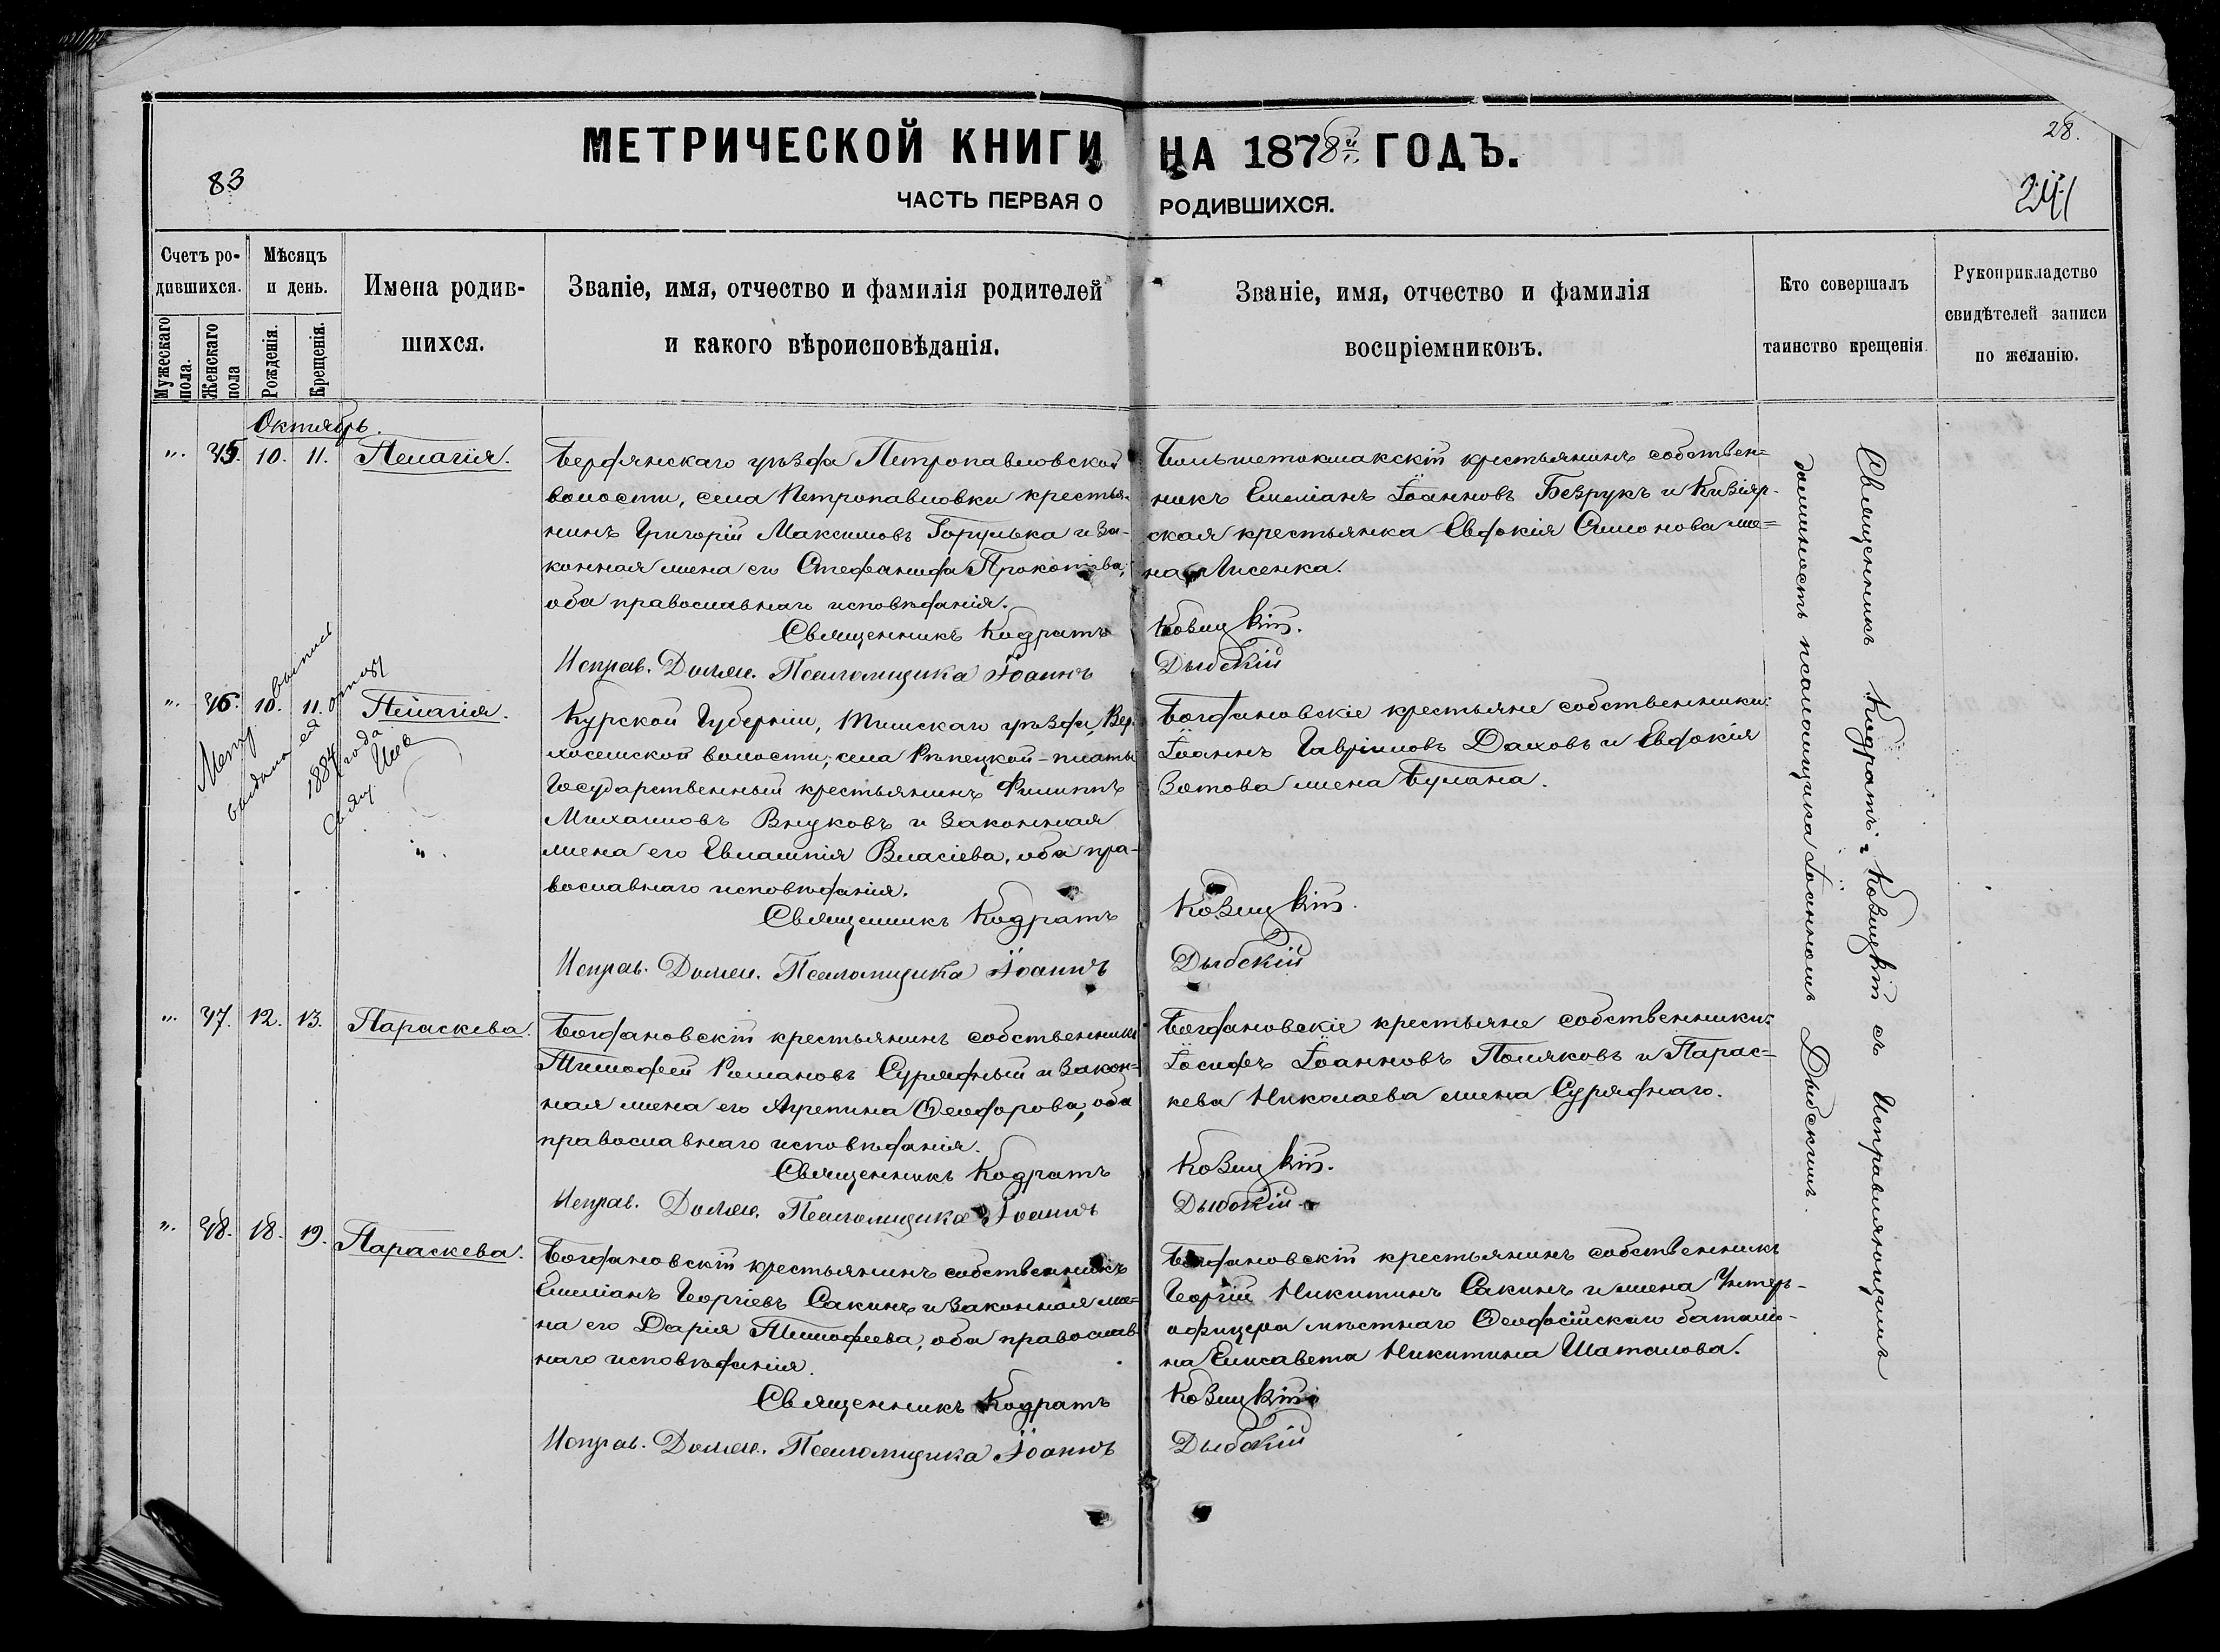 МЕТРИЧЕСКОЙ КНИГИ НА 1878й ГОДЪ.
28.
83
ЧАСТЬ ПЕРВАЯ О РОДИВШИХСЯ.
Счетъ ро-
дившихся.
Мужескаго пола.
Женскаго пола
Мѣсяцъ
и день.
Рожденія.
Крещенія.
Имена родив-
шихся.
Званіе, имя, отчество и фамилія родителей
и какого вѣроисповѣданія.
Званіе, имя, отчество и фамилія
воспріемниковъ.
Кто совершалъ
таинство крещенія.
Рукоприкладство
свидѣтелей записи
по желанію.
Октябрь.
". 45. 10. 11. Пелагія.
Бердянскаго уѣзда Петропавловской
волости, села Петропавловки крестья-
нинъ Григорій Максимовъ Горулька и За-
конная жена его Стефанида Прокопіева,
оба православнаго исповѣданія.
Священникъ Кодратъ
Исправ. Должн. Псаломщика Іоаннъ
Большетокмакскій крестьянинъ собствен=
никъ Емеліанъ Іоанновъ Безрукъ и Кизіяр-
ская крестьянка Евдокія Симонова же=
на Лисенка.
Ковицкій.
Дыбскій
". 46. 10. 11. Пелагія.
выдана
1884 года.
Курской Губерніи, Тимскаго уѣзда, Вер-
хосемской волости, села Рѣпецкой-платы
Государственный крестьянинъ Филиппъ
Михаиловъ Внуковъ и Законная
жена его Евлампія Власіева, оба пра-
вославнаго исповѣданія.
Священникъ Кодратъ
Исправ. Должн. Псаломщика Іоаннъ
Богдановскіе крестьяне собственники:
Іоаннъ Гавріиловъ Даховъ и Евдокія
Зотова жена Булана.
Ковицкій.
Дыбскій
". 47. 12. 13. Параскева.
Богдановскій крестьянинъ собственникъ
Тимофей Романовъ Сурядный и Закон-
ная жена его Агрепина Ѳеодорова, оба
православнаго исповѣданія.
Священникъ Кодратъ
Исправ. Должн. Псаломщика Іоаннъ
Богдановскіе крестьяне собственники:
Іосифъ Іоанновъ Поляковъ и Парас=
кева Николаева жена Суряднаго.
Ковицкій.
Дыбскій.
". 48. 18. 19. Параскева.
Богдановскій крестьянинъ собственникъ
Емеліанъ Георгіевъ Сакинъ и Законная же=
на его Дарія Тимофеева, оба православ-
наго исповѣданія.
Священникъ Кодратъ
Исправ. Должн. Псаломщика Іоаннъ
Богдановскій крестьянинъ собственникъ
Георгій Никитинъ Сакинъ и жена Унтеръ-
офицера мѣстнаго Ѳеодосійскаго баталіо-
на Елисавета Никитина Шаталова.
Ковицкій.
Дыбскій
Священникъ Кодратъ Ковицкій съ Исправляющимъ
должность псаломщика Іоанномъ Дыбскимъ.